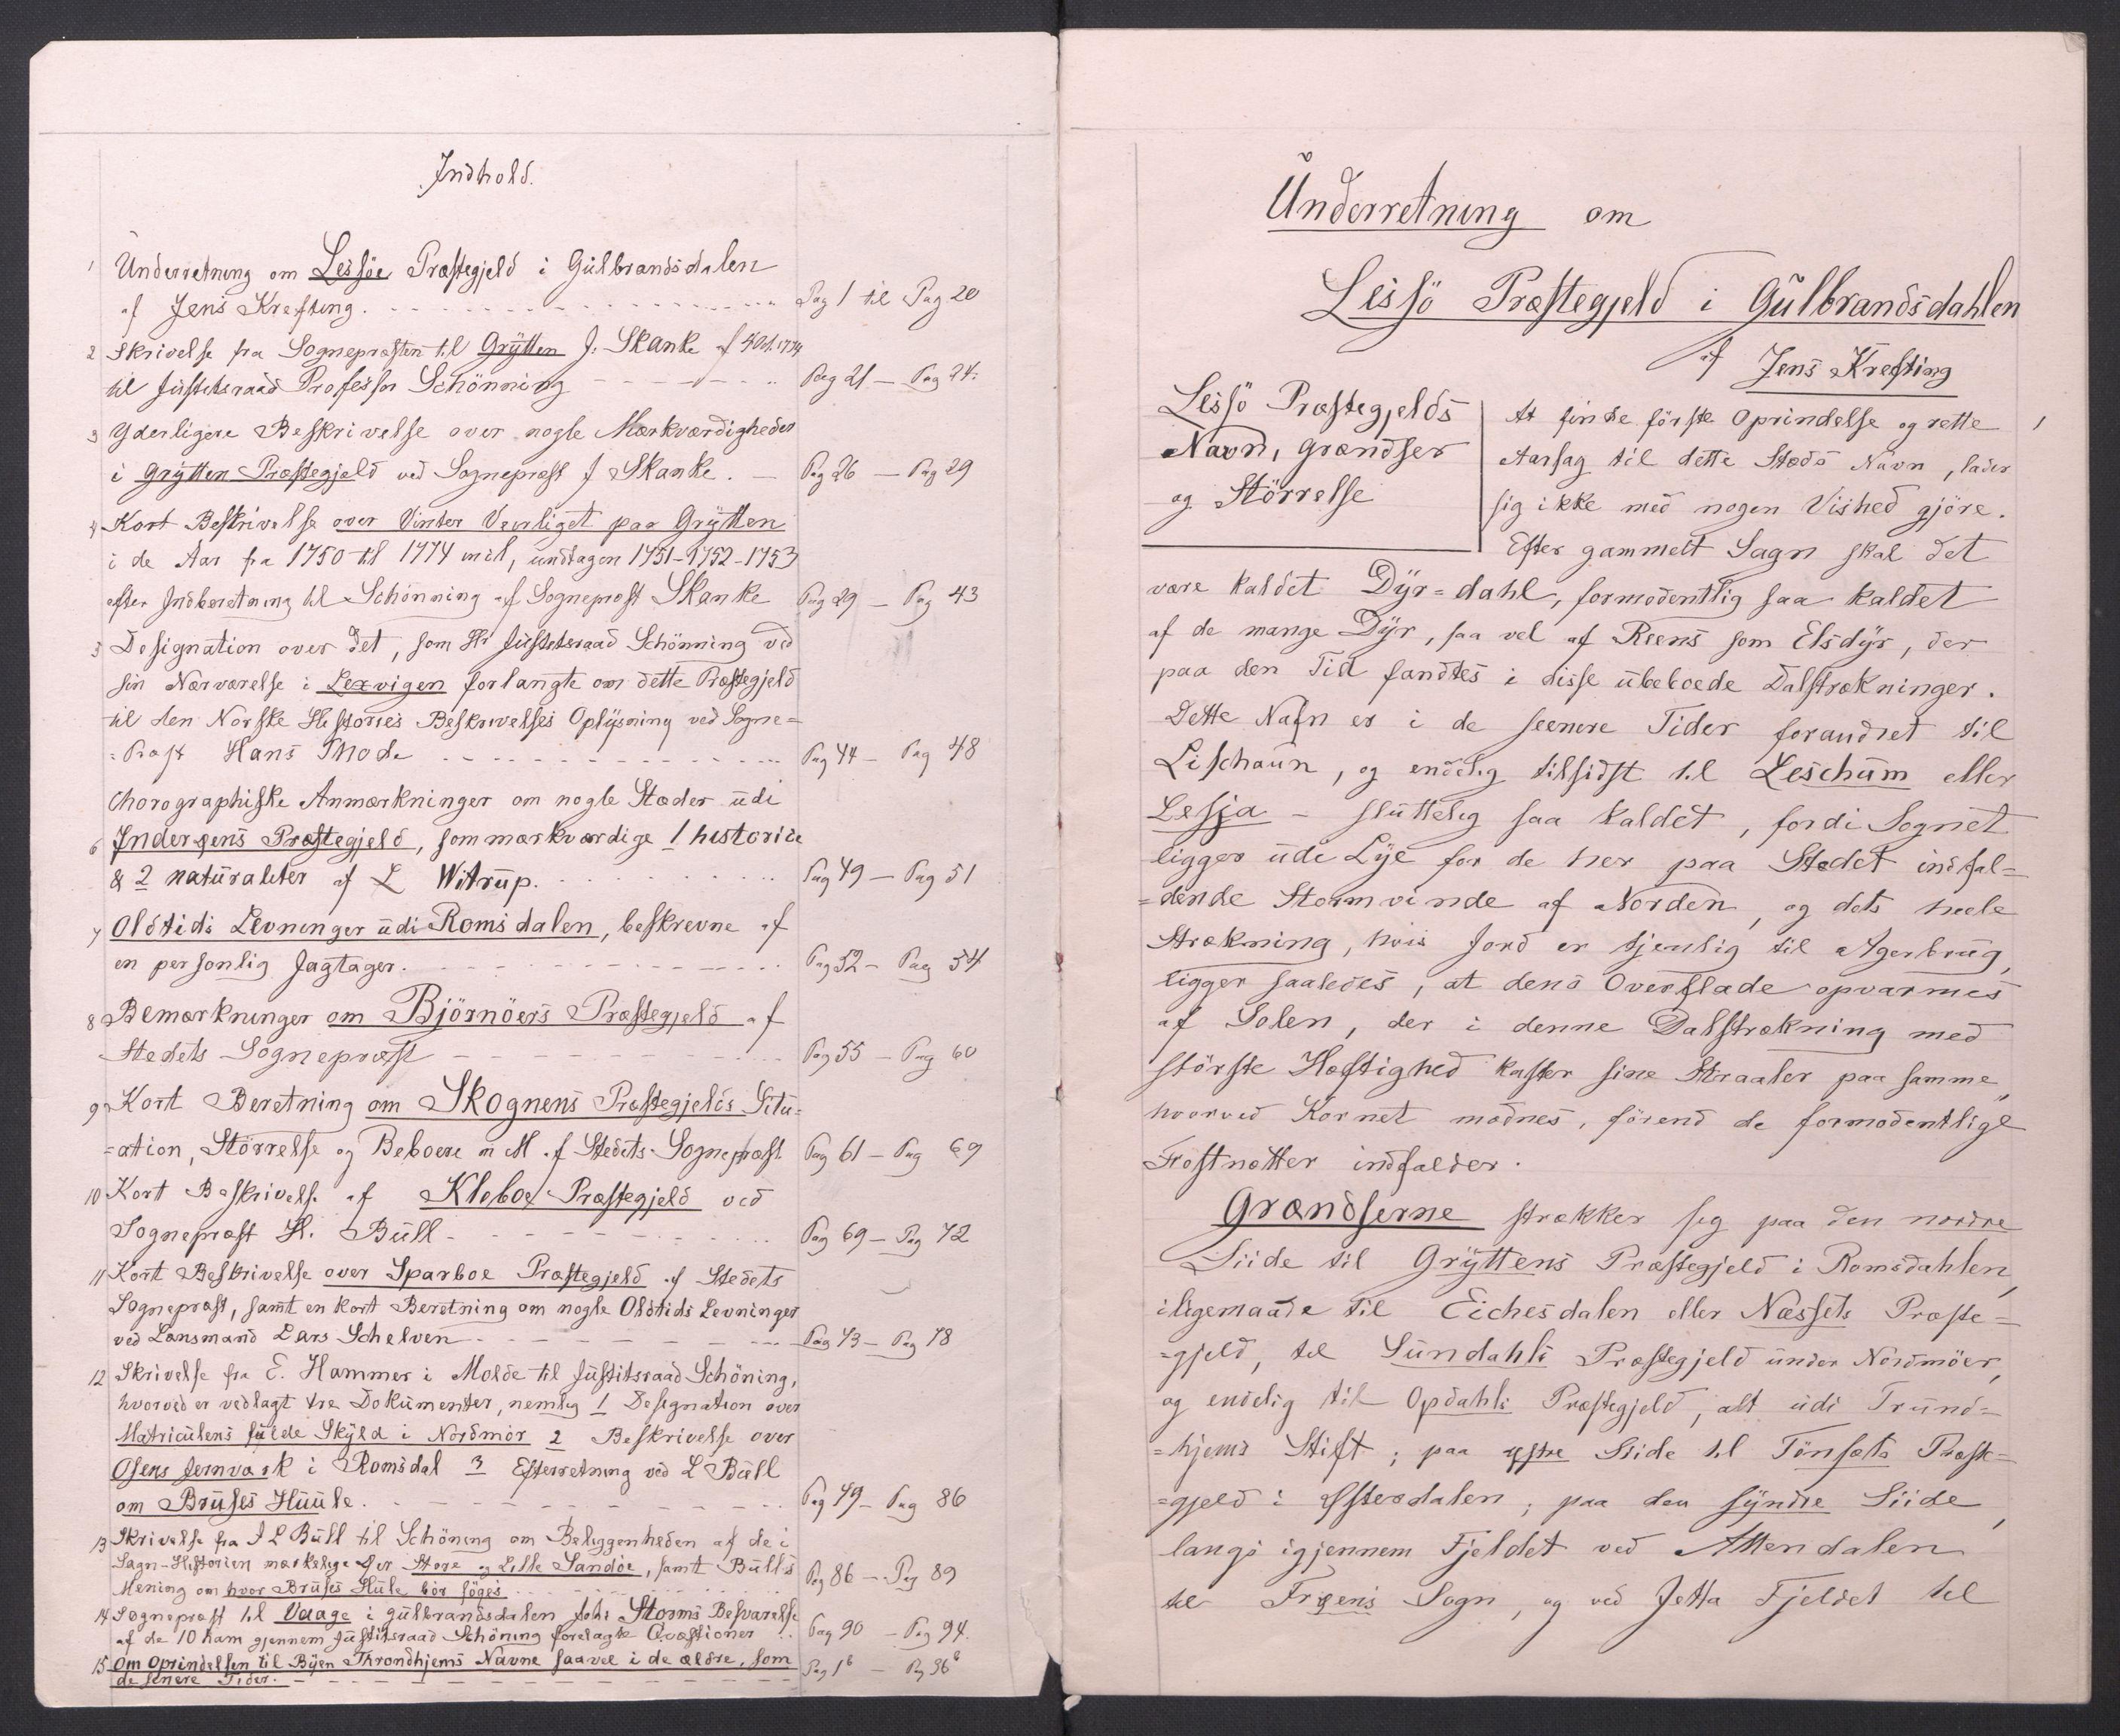 Indhold.
1 Ünderretning om Lessöe Præstegjeld i Gülbrandsdalen
af Jens Krefting. Pag 1 til Pag 20
2 Skrivelse fra Sognepræsten til Grÿtten J. Skanke af 1774
til Jüstitsraad Professor Schönning Pag 21 — Pag 24.
3 Yderligere Beskrivelse over nogle Mærkværdigheder
i Grÿtten Præstegjeld ved Sognepræst J Skanke. — Pag 26 — Pag 29
4 Kort Beskrivelse over Vinter Veirliget paa Grÿtten
i de Aar fra 1750 til 1774 incl, ündtagen 1751-1752-1753
efter Indberetning til Schönning af Sognepræst Skanke Pag 29 — Pag 43
5 Designation over det, som Hr Jüstitsraad Schönning ved
sin Nærværelse i Lexvigen forlangte om dette Præstegjeld
til den Norske Histories Beskrivelses Oplÿsning ved Sogne=
=Præst Hans Thode Pag 44 — Pag 48
Chorographiske Anmærkninger om nogle Stæder üdi
6 Inderøens Præstegjeld, som mærkværdige 1 historice
& 2 natüraliter af L Witrüp. Pag 49 — Pag 51
7 Oldtids Levninger üdi Romsdalen, beskrevne af
en personlig Jagtager. Pag 52 — Pag 54
8 Bemærkninger om Björnöers Præstegjeld af
Stedets Sognepræst Pag 55 — Pag 60
9 Kort Beretning om Skognens Præstegjelds Sitü=
=ation, Störrelse og Beboere m M af Stedets Sognepræst. Pag 61 — Pag 69
10 Kort Beskrivelse af Kleboe Præstegjeld ved
Sognepræst H. Büll Pag 69 — Pag 72
11 Kort Beskrivelse over Sparboe Præstegjeld af Stedets
Sognepræst, samt en kort Beretning om nogle Oldtids Levninger
ved Lensmand Lars Schelven Pag 73 — Pag 78
12 Skrivelse fra E. Hammer i Molde til Jüstitsraad Schöning,
hvorved er vedlagt tre Dokümenter, nemlig 1 Designation over
Matricülens fülde Skÿld i Nordmör 2 Beskrivelse over
Osens Jernværk i Romsdal 3 Efterretning ved L Büll
om Brüses Hüüle. Pag 79 — Pag 86
13 Skrivelse fra J L Büll til Schöning om Beliggenheden af de i
Sagn-Historien mærkelige Øer Store og Lille Sandöe, samt Büll's
Mening om hvor Brüses Hüle bör söges Pag 86 — Pag 89
14 Sognepræst til Vaage i Gülbrandsdalen Joh: Storms Besvarelse
af de 10 ham gjennem Jüstitsraad Schöning forelagte Qvæstioner Pag 90 — Pag 94.
15 Om Oprindelsen til Bÿen Throndhjems Navne saavel i de ældre, som
de senere Tider. Pag 1b — Pag 36b
Ünderretning om
Lessö Præstegjeld i Gülbrandsdahlen
af Jens Krefting
1
Lessö Præstegjelds
Navn, Grændser
og Störrelse
At finde förste Oprindelse og rette
Aarsag til dette Stæds Navn, lader
sig ikke med nogen Vished gjöre.
Efter gammelt Sagn skal det
være kaldet Dÿr=dahl, formodentlig saa kaldet
af de mange Dÿr, saa vel af Reens som Elsdÿr, der
paa den Tid fandtes i disse übeboede Dalstrækninger.
Dette Nafn er i de seenere Tider forandret til
Lischaün, og endelig tilsidst til Leschüm eller
Lesja — slüttelig saa kaldet, fordi Sognet
ligger üdi Lÿe for de her paa Stedet indfal=
=dende Stormvinde af Norden, og dets heele
Strækning, hvis Jord er tjenlig til Agerbrüg,
ligger saaledes, at dens Overflade opvarmes
af Solen, der i denne Dalstrækning med
störste Hæftighed kaster sine Straaler paa samme,
hvorved Kornet modnes, förend de formodentlige
Frostnætter indfalder.
Grændserne strækker sig paa den nordre
Siide til Grÿttens Præstegjeld i Romsdahlen,
iligemaade til Eichesdalen eller Næssets Præste=
=gjeld, til Sündahls Præstegjeld ünder Nordmöer,
og endelig til Opdahls Præstegjeld, alt üdi Tründ=
=hjems Stift; paa østre Siide til Tönsæts Præst=
=gjeld i Østerdalen; paa den sÿndre Siide,
langs igjennem Fjeldet ved Attendalen
til Frøens Sogn, og ved Jetta Fjeldet til